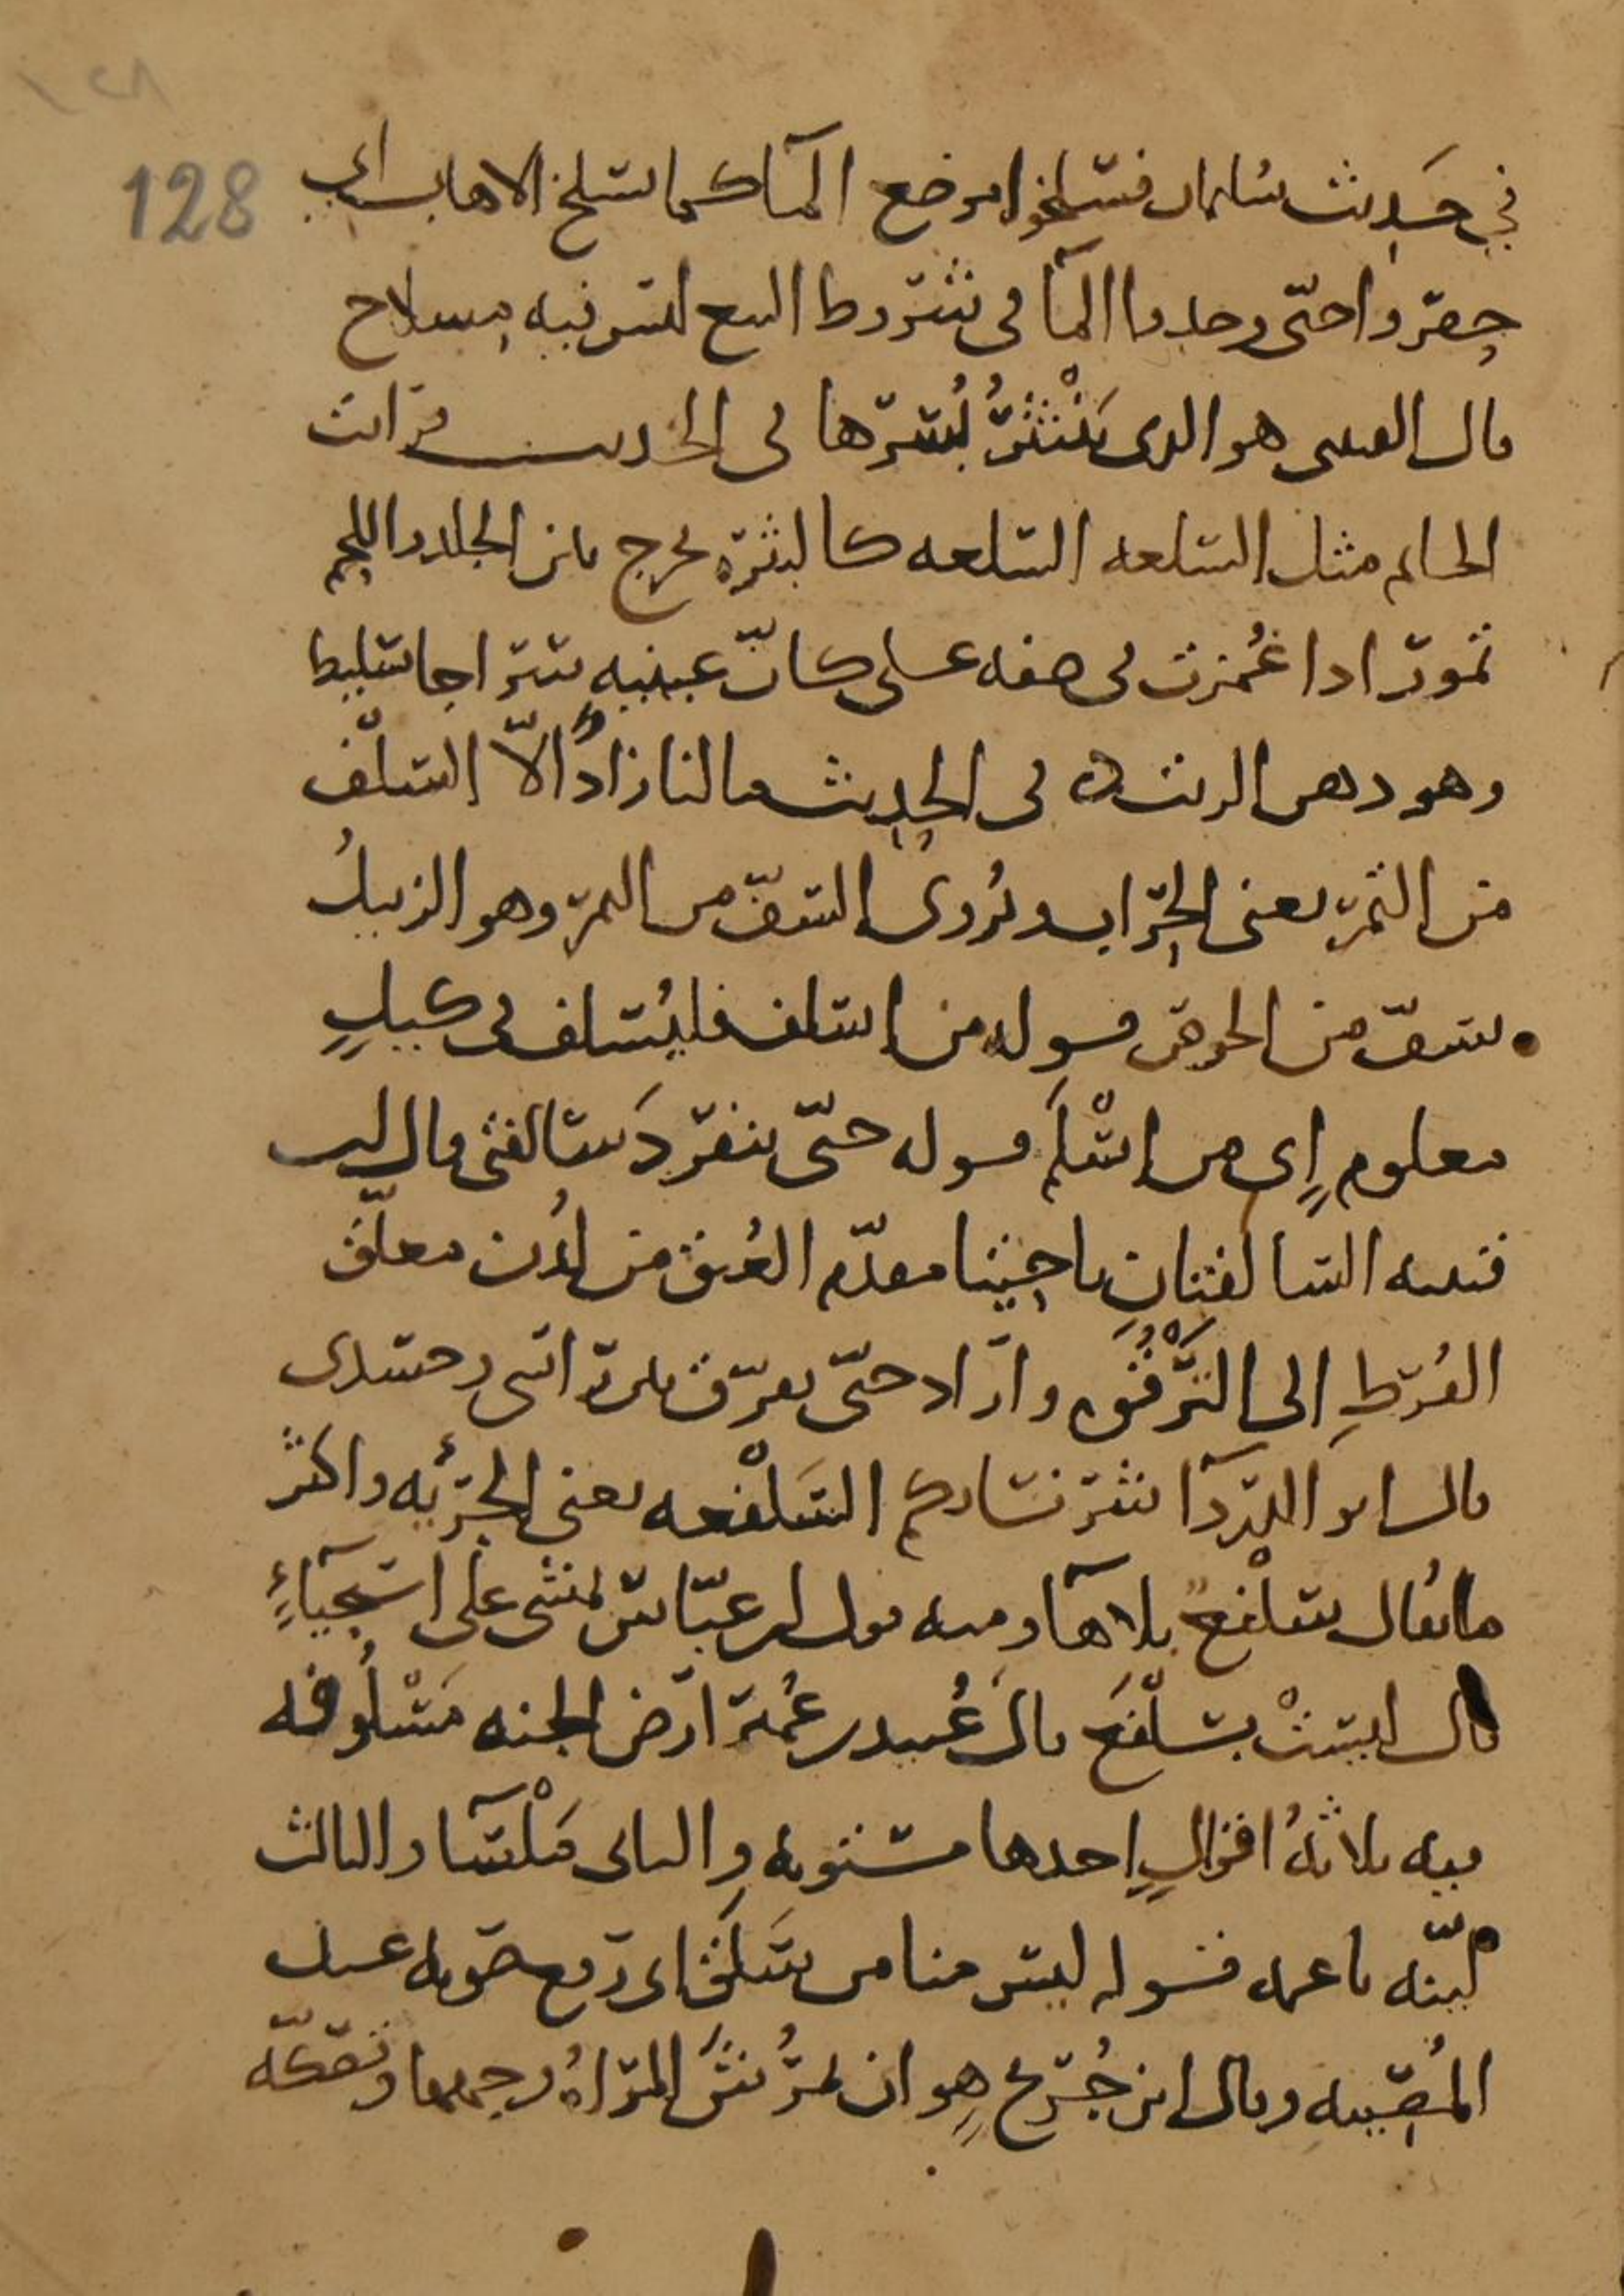 128
في حديث سليمان فسلخوا موضع المآ كما يسلخ الاهاب اي
حفروا حتى وجدوا المآ في شروط البيع ليس فيه مسلاخ
قال القتيبي هو الذي ينتثر بسرها في الحديث فرايت
الخاتم مثل السلعه السلعه كالبثره يخرج بين الجلد واللحم
تمور اذا غمزت في صفه علي كان عينيه سراجا سليط
وهو دهن الزيت في الحديث ما لنا زاد الا السلف
من التمر يعني الجراب ويروى السف من التمر وهو الزبيل
يسف من الخوص قوله من اسلف فليسلف في كيل
معلوم اي من اسلم قوله حتى تنفرد سالفتي قال ابن
قتيبه السالفتان ناحيتا مقدم العنق من لدن معلق
القرط الى الترقوه واراد حتى يفرق بين راسي وجسدي
قال ابو الدردآ شر نسائكم السلفعه يعني الجريه واكثر
ما يقال سلفع بلا هآ ومنه قول ابن عباس تمشي على استحيآء
قال ليست بسلفع قال عبيد بن عمير ارض الجنه مسلوفه
فيه ثلاثه اقوال احدها مستويه والثاني ملسآ والثالث
لينه ناعمه قوله ليس منا من سلق اي رفع صوته عند
المصيبه وقال ابن جريج هو ان تمرش المراه وجهها وتصكه